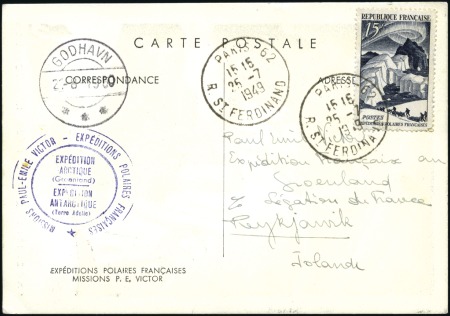 CARTE POSTALE
GODHAVN
CORRESPONDANCE
ADRESSE
PARIS 62
15 15
25-7
1949
R. ST FERDINAND
PARIS 62
15 15
25-7
R. ST FERDINAND
REPUBLIQUE FRANÇAISE
15F
POSTES
EXPEDITIONS POLAIRES FRANÇAISES
MISSIONS PAUL-EMILE VICTOR - EXPÉDITIONS POLAIRES FRANÇAISES
EXPÉDITION
ARCTIQUE
(Groenland)
EXPÉDITION
ANTARCTIQUE
(Terre Adélie)
Paul Emile Victor
Expédition Française au
Groenland
Légation de France
Reykjavik
Islande
EXPÉDITIONS POLAIRES FRANÇAISES
MISSIONS P. E. VICTOR